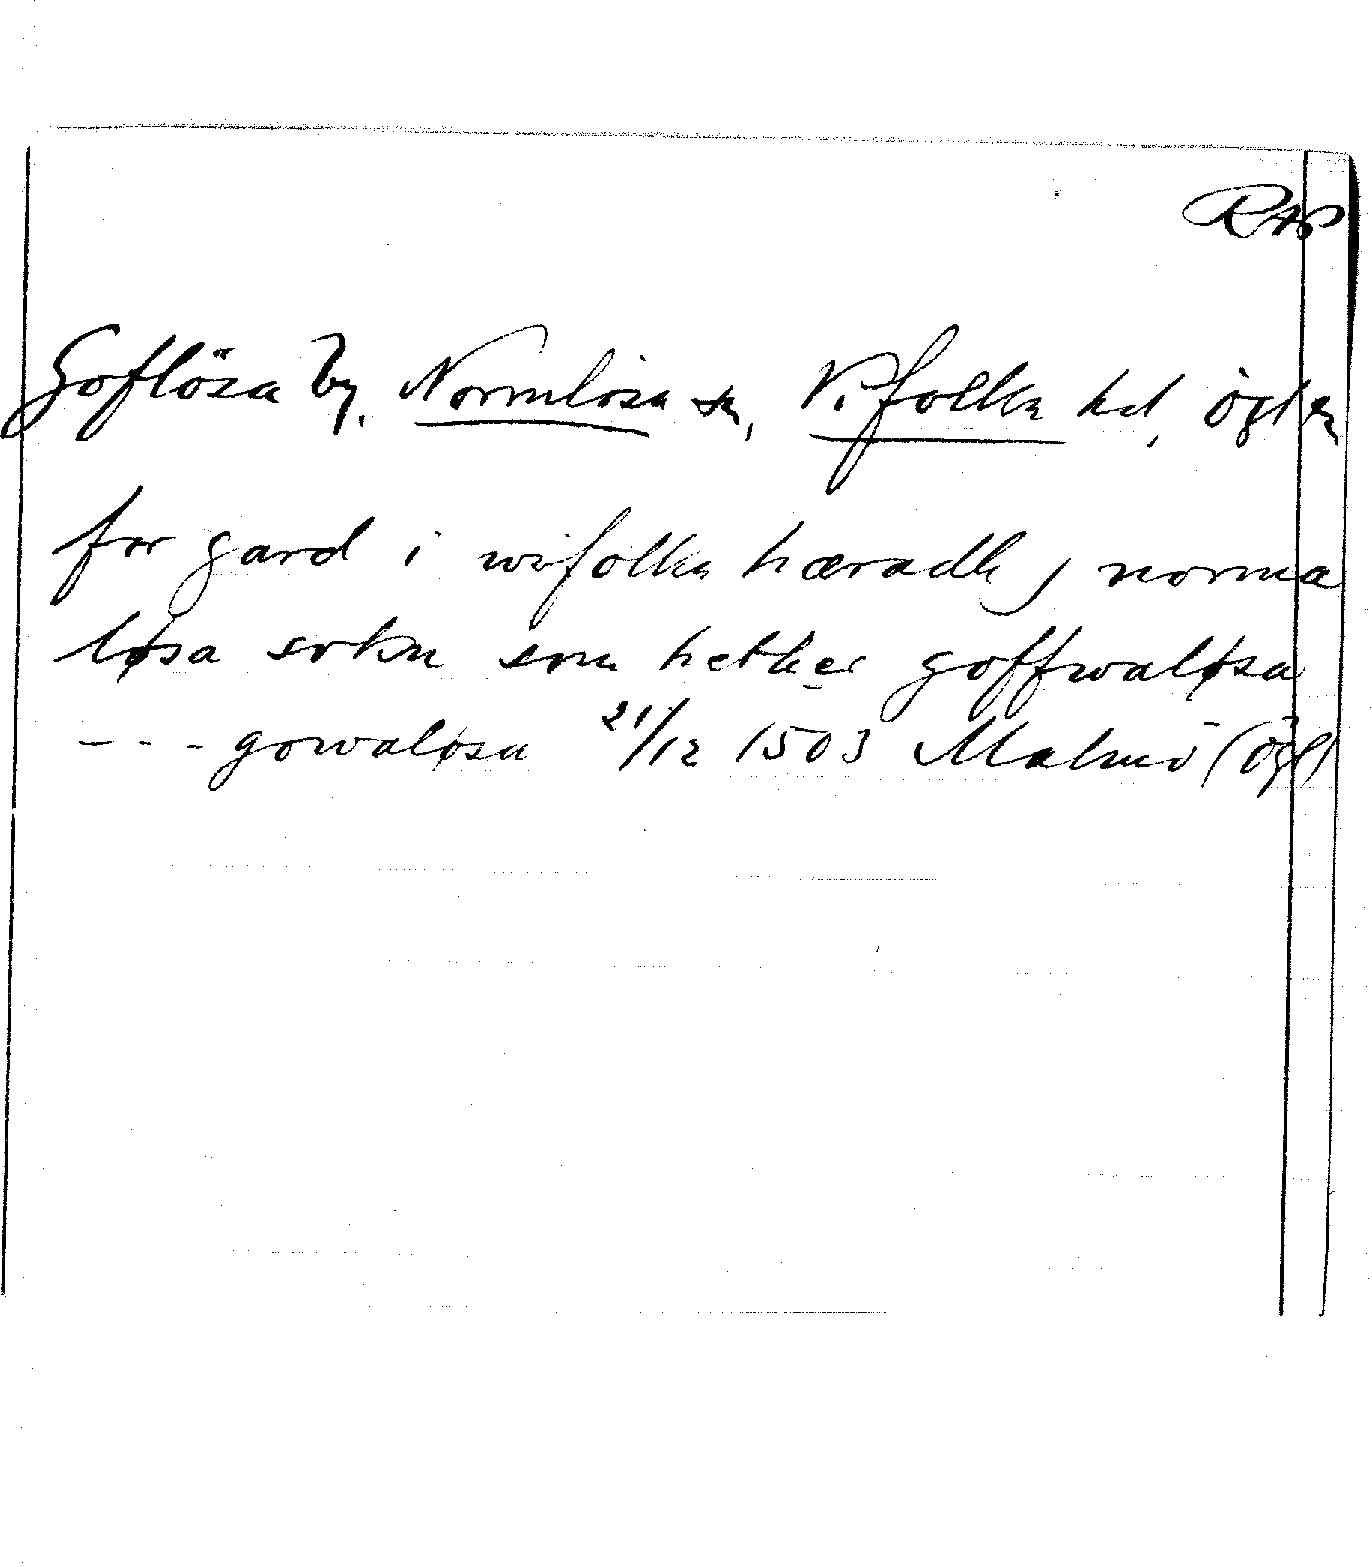 RAP
Goflösa by, Normlösa sn, Vifolka hd, Ögl
for gard i wifolka hæradh j norma
løsa sokn som hether goffwaløsa
- - - gowaløsa 21/12 1503 Malmö (Ögl)